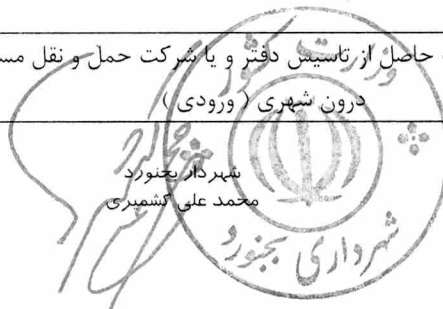 حاصل از تاسیس دفتر و یا شرکت حمل و نقل
درون شهری ( ورودی )
شهردار بجنورد
محمد علی کشمیری
وزارت کشور
شهرداری بجنورد